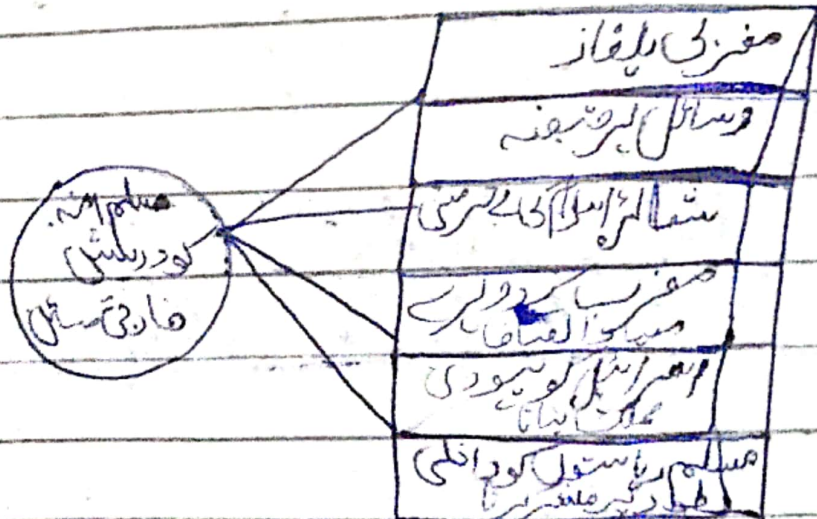 مسلم امہ
کو درپیش
خارجی مسائل
مغربی یلغار
وسائل پر قبضہ
شعائر اسلام کی بے حرمتی
مغرب کے دوہرے
معیار
اسرائیل کو یہودی
مملکت بنانا
مسلم ریاستوں کو داخلی
طور پر